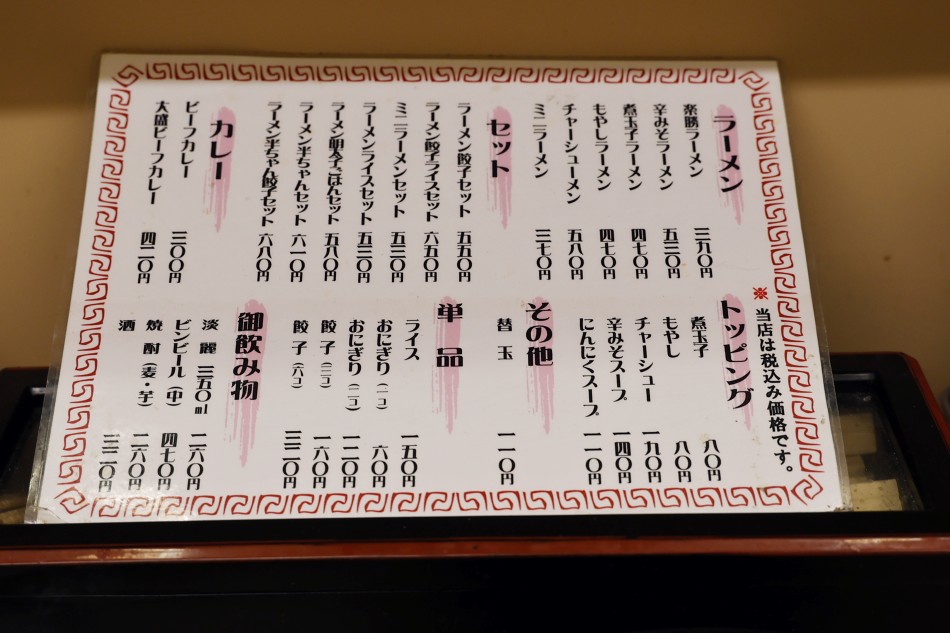 ラーメン
楽勝ラーメン 三九〇円
辛みそラーメン 五三〇円
煮玉子ラーメン 四七〇円
もやしラーメン 四七〇円
チャーシューメン 五八〇円
ミニラーメン 三七〇円
セット
ラーメン餃子セット 五五〇円
ラーメン餃子ライスセット 六五〇円
ミニラーメンセット 五三〇円
ラーメンライスセット 五三〇円
ラーメン明太子ごはんセット 五八〇円
ラーメン半ちゃんセット 六一〇円
ラーメン半ちゃん餃子セット 六八〇円
カレー
ビーフカレー 三〇〇円
大盛ビーフカレー 四二〇円
※当店は税込み価格です。
トッピング
煮玉子 八〇円
もやし 八〇円
チャーシュー 一九〇円
辛みそスープ 一四〇円
にんにくスープ 一一〇円
その他
替玉 一一〇円
単品
ライス 一五〇円
おにぎり(一コ) 六〇円
おにぎり(二コ) 一二〇円
餃子(三コ) 一六〇円
餃子(六コ) 三二〇円
御飲み物
淡麗 三五〇ml 二六〇円
ビンビール(中) 四七〇円
焼酎(麦・芋) 二六〇円
酒 三二〇円